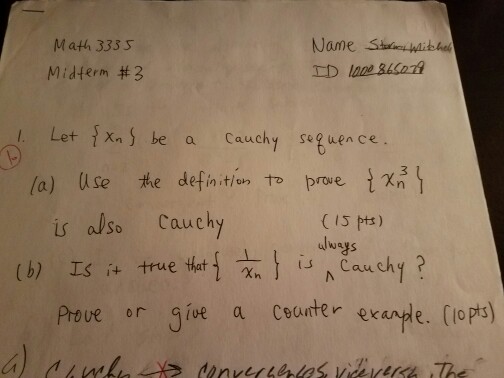 Math 3335 Name
Midterm #3 ID
1. Let {xn} be a cauchy sequence.
(a) Use the definition to prove {xn³}
is also Cauchy (15 pts)
(b) Is it true that {1/xn} is always Cauchy?
Prove or give a counter example. (10pts)
a) Cauchy → convergences, viceversa. The